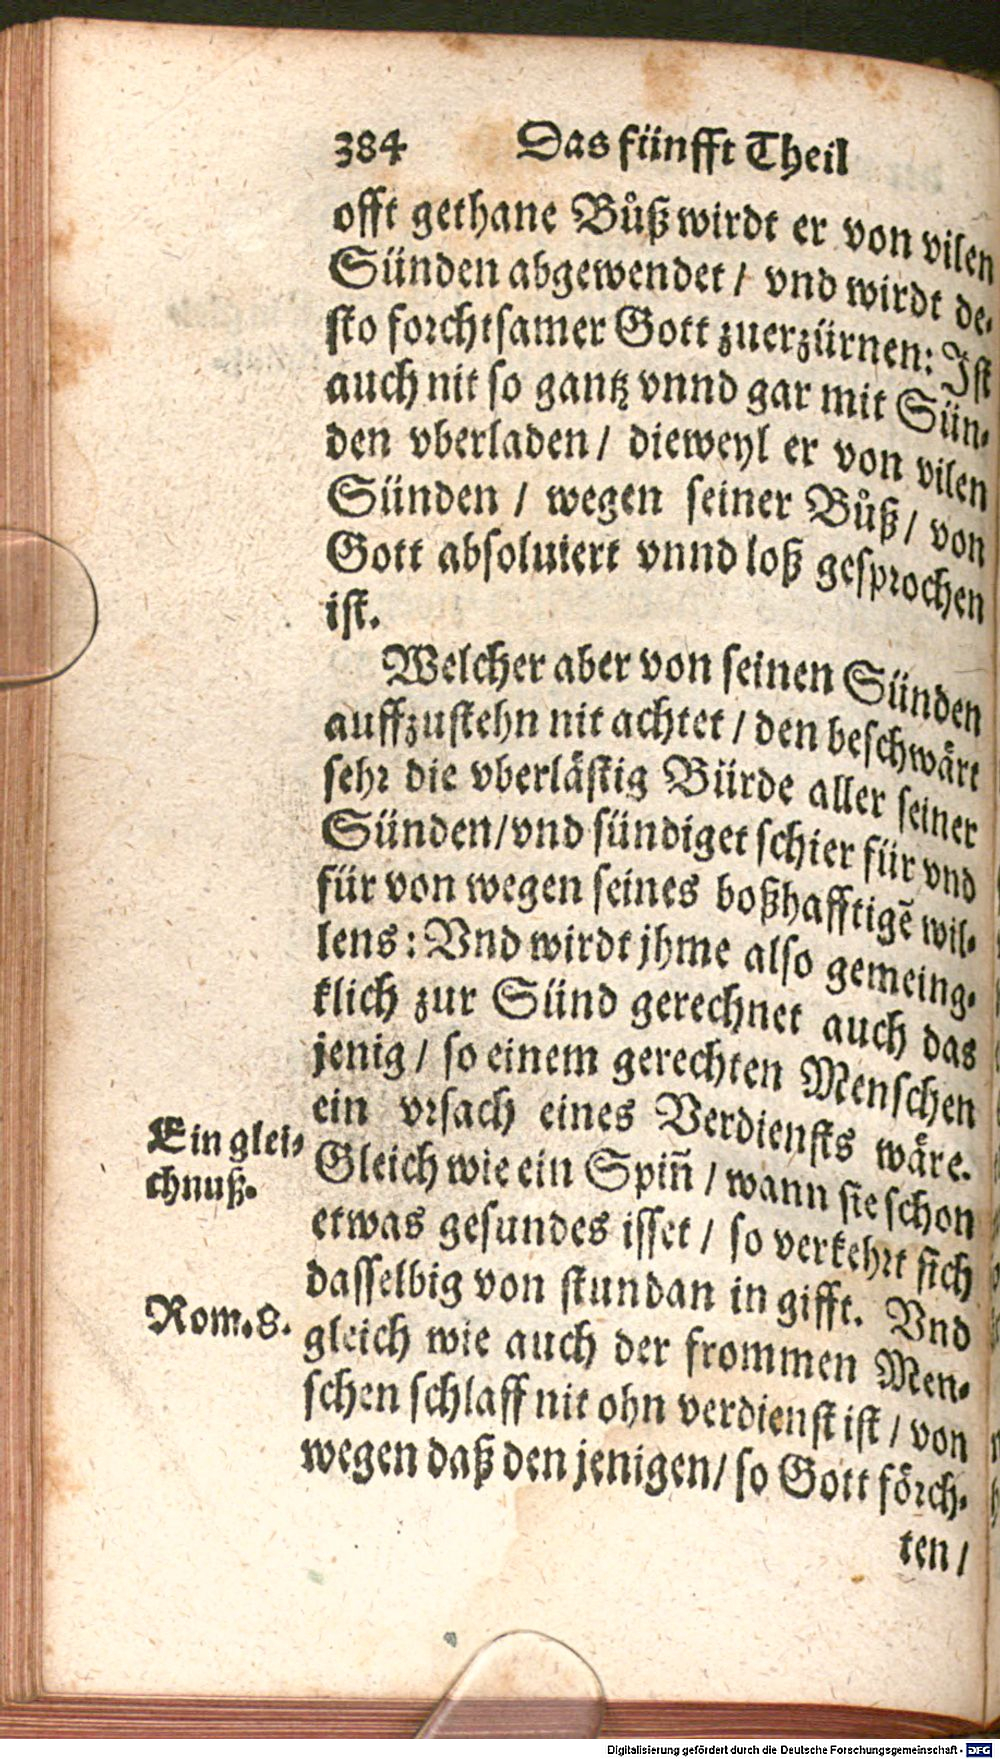 384 Das fünfft Theil
offt gethane Bůß wirdt er von vilen
Sünden abgewendet / vnd wirdt de-
sto forchtsamer Gott zuerzürnen: Ist
auch nit so gantz vnnd gar mit Sün-
den vberladen / dieweyl er von vilen
Sünden / wegen seiner Bůß / von
Gott absoluiert vnnd loß gesprochen
ist.
Welcher aber von seinen Sünden
auffzustehn nit achtet / den beschwärt
sehr die vberlästig Bürde aller seiner
Sünden / vnd sündiget schier für vnd
für von wegen seines boßhafftigẽ wil-
lens: Vnd wirdt jhme also gemeing-
klich zur Sünd gerechnet auch das
jenig / so einem gerechten Menschen
ein vrsach eines Verdiensts wäre.
Ein glei-
chnuß.
Gleich wie ein Spiñ / wann sie schon
etwas gesundes isset / so verkehrt sich
dasselbig von stundan in gifft. Vnd
Rom. 8.
gleich wie auch der frommen Men-
schen schlaff nit ohn verdienst ist / von
wegen daß den jenigen / so Gott förch-
ten /
Digitalisierung gefördert durch die Deutsche Forschungsgemeinschaft - DFG